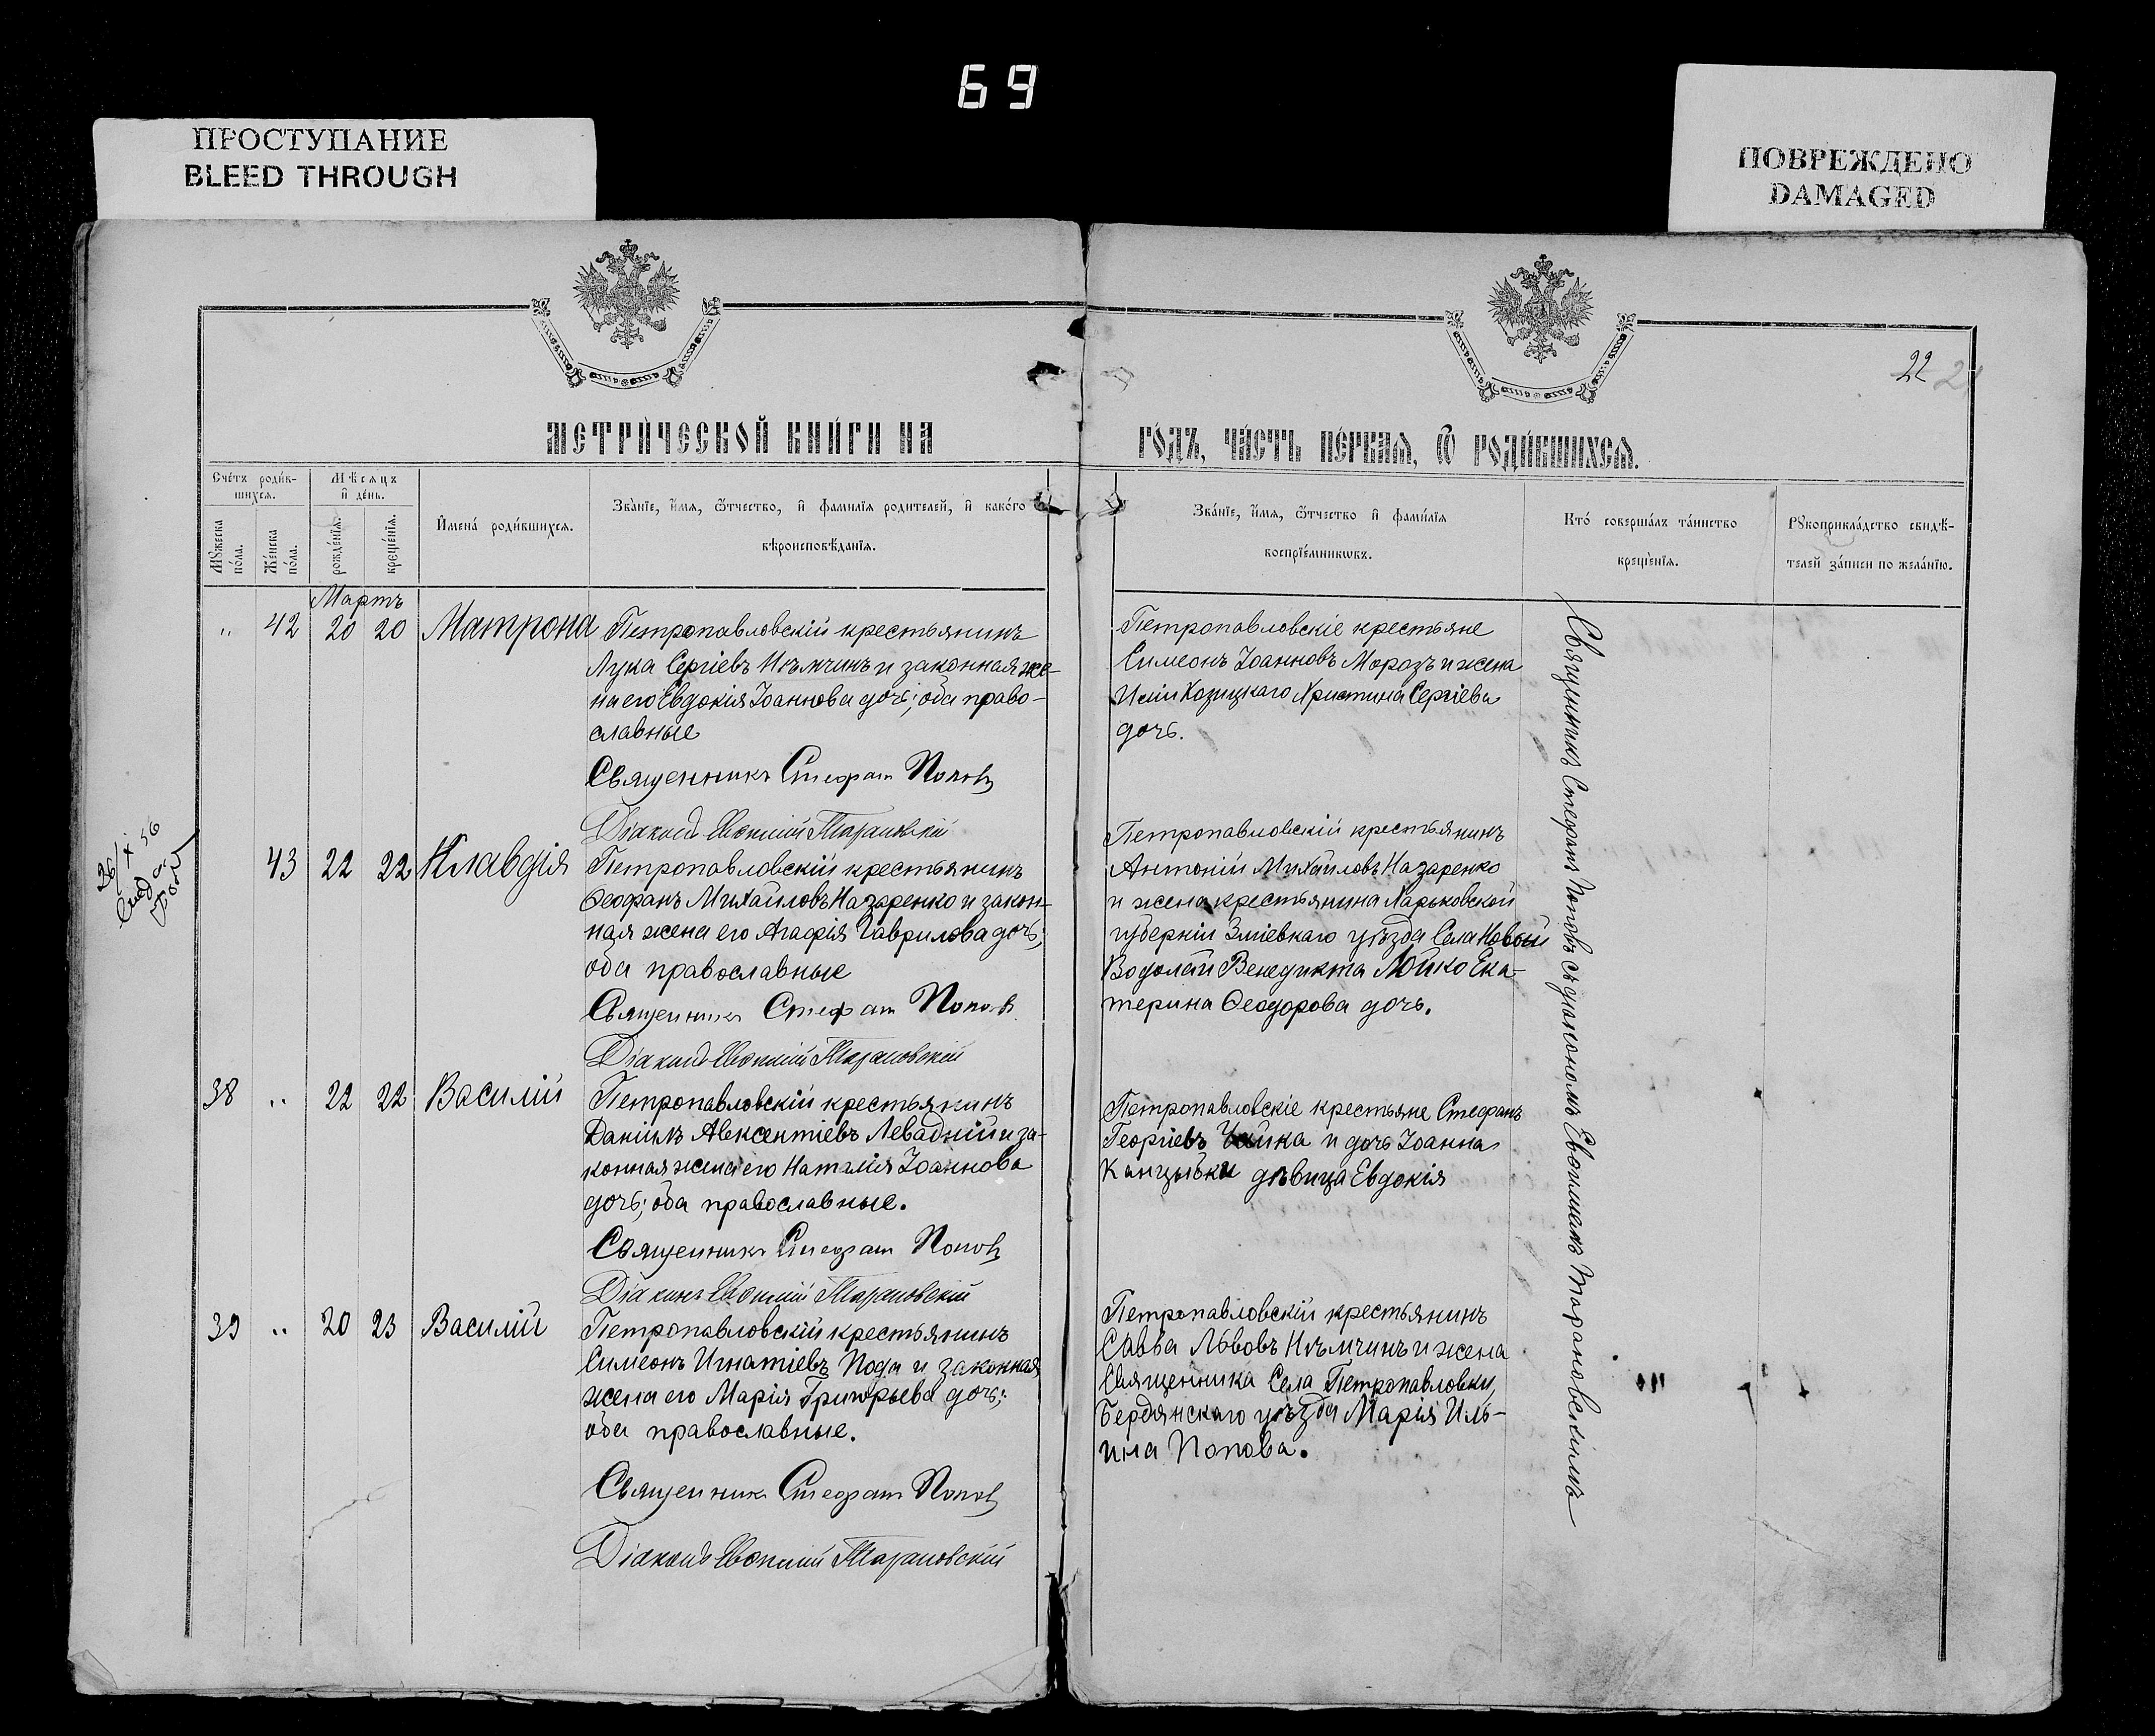 69
ПРОСТУПАНИЕ
BLEED THROUGH
ПОВРЕЖДЕНО
DAMAGED
22
МЕТРИ́ЧЕСКОЙ КНИ́ГИ НА
ГО́ДЪ, ЧА́СТЬ ПЕ́РВАЯ, Ѿ РОДИ́ВШИХСЯ.
Сче́тъ роди́в-
шихся.
Мѣ́сяцъ
и҆ де́нь.
Мꙋ́жеска
по́ла.
Же́нска
по́ла.
рожде́нїѧ.
креще́нїѧ.
И҆мена́ роди́вшихсѧ.
Зва́нїе, и҆́мѧ, ѻ҆́тчество, и҆ фами́лїѧ роди́телей, и҆ како́го
вѣроисповѣ́данїѧ.
Зва́нїе, и҆́мѧ, ѻ҆́тчество и҆ фами́лїѧ
воспрїе́мникѡвъ.
Кто́ соверша́лъ та́инство
креще́нїѧ.
Рꙋкоприкла́дство свидѣ́-
телей за́писи по жела́нїю.
Мартъ
" 42 20 20 Матрона
Петропавловскій крестьянинъ
Лука Сергіевъ Нѣмчинъ и законная же-
на его Евдокія Іоаннова дочь; оба право-
славные
Священникъ Стефанъ Поповъ
Діаконъ Евѳимій Тарановскій
Петропавловскіе крестьяне
Симеонъ Іоанновъ Морозъ и жена
Козицкаго Христина Сергіева
дочь.
43 22 22 Клавдія
Петропавловскій крестьянинъ
Ѳеофанъ Михайловъ Назаренко и закон-
ная жена его Агафія Гаврилова дочь;
оба православные
Священникъ Стефанъ Поповъ
Діаконъ Евѳимій Тарановскій
Петропавловскій крестьянинъ
Антоній Михайловъ Назаренко
и жена крестьянина Харьковской
губерніи Зміевкаго уѣзда Села Новой
Водолаги Венедикта Лойко Ека-
терина Ѳеодорова дочь.
38 " 22 22 Василій
Петропавловскій крестьянинъ
Даніилъ Авксентіевъ Левадній и за-
конная жена его Наталія Іоаннова
дочь; оба православные.
Священникъ Стефанъ Поповъ
Діаконъ Евѳимій Тарановскій
Петропавловскіе крестьяне Стефанъ
Георгіевъ Чайка и дочь Іоанна
Канцыбки дѣвица Евдокія
39 " 20 23 Василій
Петропавловскій крестьянинъ
Симеонъ Игнатіевъ Пода и законная
жена его Марія Григорьева дочь;
оба православные.
Священникъ Стефанъ Поповъ
Діаконъ Евѳимій Тарановскій
Петропавловскій крестьянинъ
Савва Львовъ Нѣмчинъ и жена
Священника Села Петропавловки,
Бердянскаго уѣзда Марія Иль-
ина Попова.
Священникъ Стефанъ Поповъ съ діакономъ Евѳиміемъ Тарановскимъ